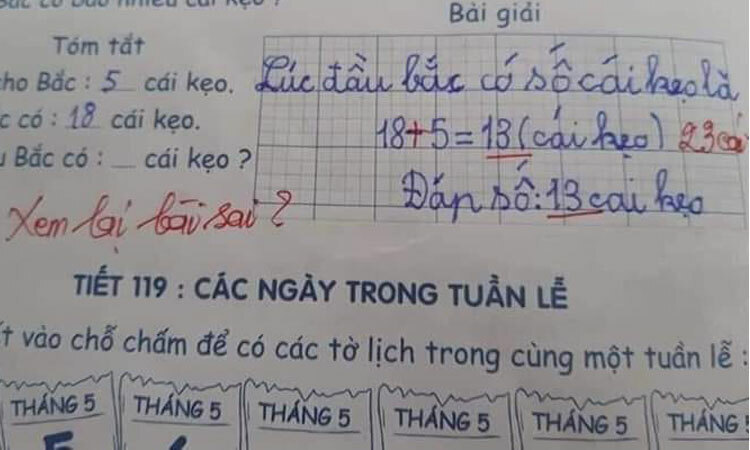 Bài giải
Tóm tắt
cho Bắc : 5 cái kẹo.
c có : 18 cái kẹo.
Bắc có : __ cái kẹo ?
Lúc đầu bắc có số cái kẹo là
18+5=13(cái kẹo) 23cái
Đáp số:13 cái kẹo
Xem lại bài sai ?
TIẾT 119 : CÁC NGÀY TRONG TUẦN LỄ
vào chỗ chấm để có các tờ lịch trong cùng một tuần lễ :
THÁNG 5 THÁNG 5 THÁNG 5 THÁNG 5 THÁNG 5 THÁNG 5